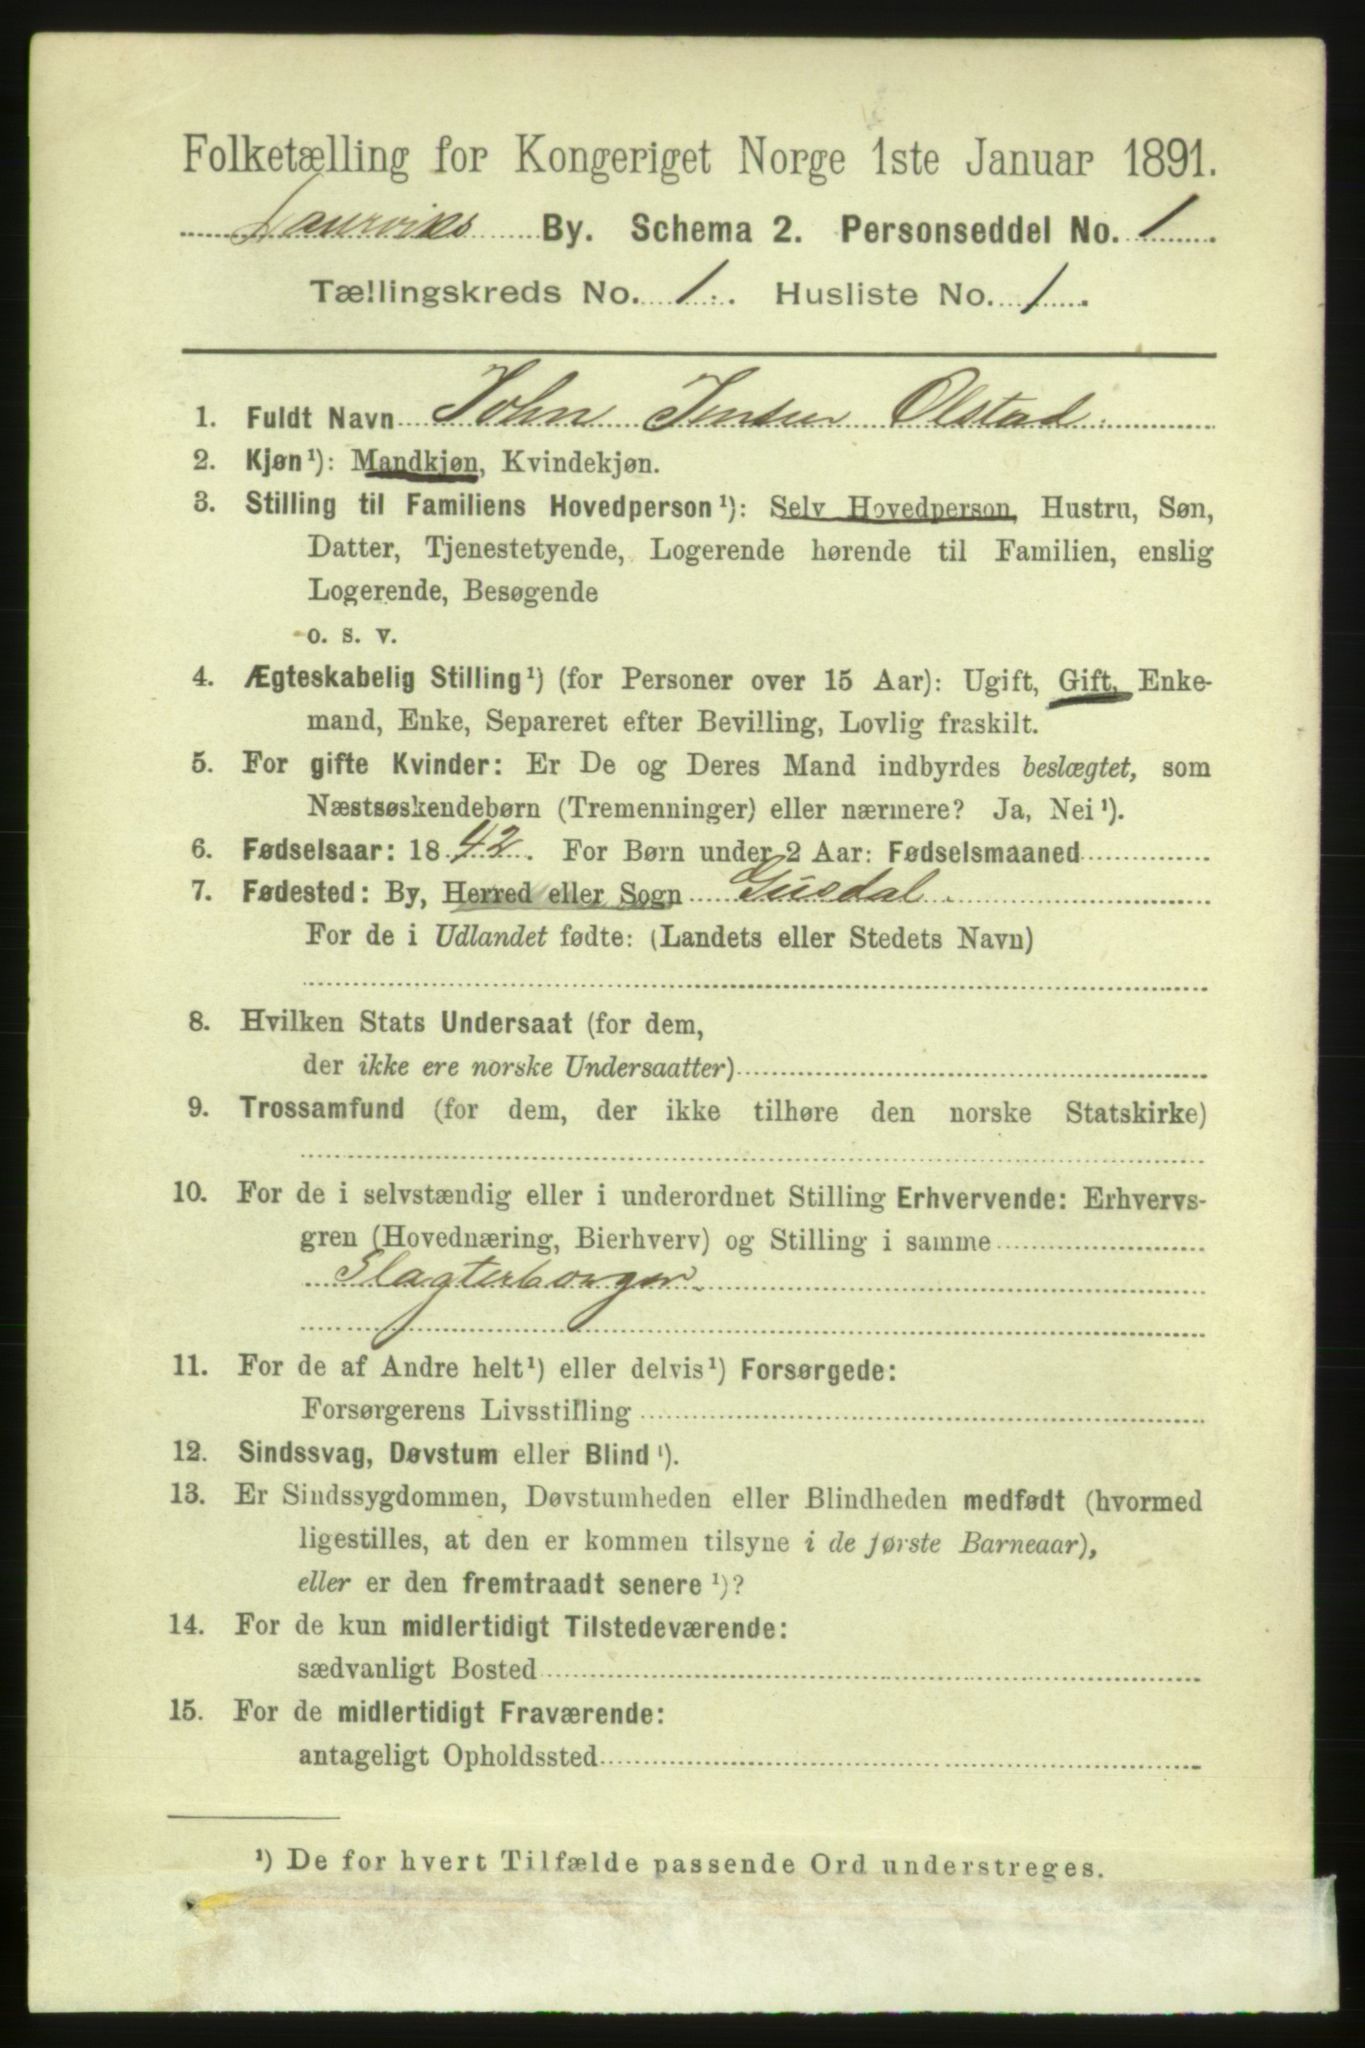 Folketælling for Kongeriget Norge 1ste Januar 1891.
Laurviks By. Schema 2. Personseddel No. 1
Tællingskreds No. 1. Husliste No. 1.
1. Fuldt Navn John Jensen Olstad
2. Kjøn¹): Mandkjøn, Kvindekjøn.
3. Stilling til Familiens Hovedperson¹): Selv Hovedperson, Hustru, Søn,
Datter, Tjenestetyende, Logerende hørende til Familien, enslig
Logerende, Besøgende
o. s. v.
4. Ægteskabelig Stilling¹) (for Personer over 15 Aar): Ugift, Gift, Enke-
mand, Enke, Separeret efter Bevilling, Lovlig fraskilt.
5. For gifte Kvinder: Er De og Deres Mand indbyrdes beslægtet, som
Næstsøskendebørn (Tremenninger) eller nærmere? Ja, Nei¹).
6. Fødselsaar: 1842. For Børn under 2 Aar: Fødselsmaaned
7. Fødested: By, Herred eller Sogn Gusdal
For de i Udlandet fødte: (Landets eller Stedets Navn)
8. Hvilken Stats Undersaat (for dem,
der ikke ere norske Undersaatter)
9. Trossamfund (for dem, der ikke tilhøre den norske Statskirke)
10. For de i selvstændig eller i underordnet Stilling Erhvervende: Erhvervs-
gren (Hovednæring, Bierhverv) og Stilling i samme
Slagterborger
11. For de af Andre helt¹) eller delvis¹) Forsørgede:
Forsørgerens Livsstilling
12. Sindssvag, Døvstum eller Blind¹).
13. Er Sindssygdommen, Døvstumheden eller Blindheden medfødt (hvormed
ligestilles, at den er kommen tilsyne i de første Barneaar),
eller er den fremtraadt senere¹)?
14. For de kun midlertidigt Tilstedeværende:
sædvanligt Bosted
15. For de midlertidigt Fraværende:
antageligt Opholdssted
¹) De for hvert Tilfælde passende Ord understreges.